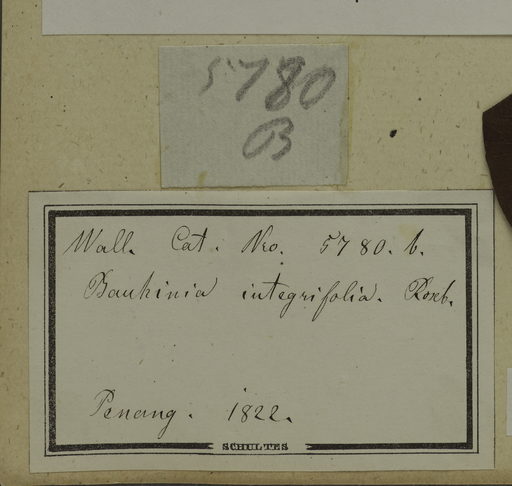 5780
B
Wall. Cat. Nro. 5780. b.
Bauhinia integrifolia. Roxb.
Penang. 1822.
SCHULTES